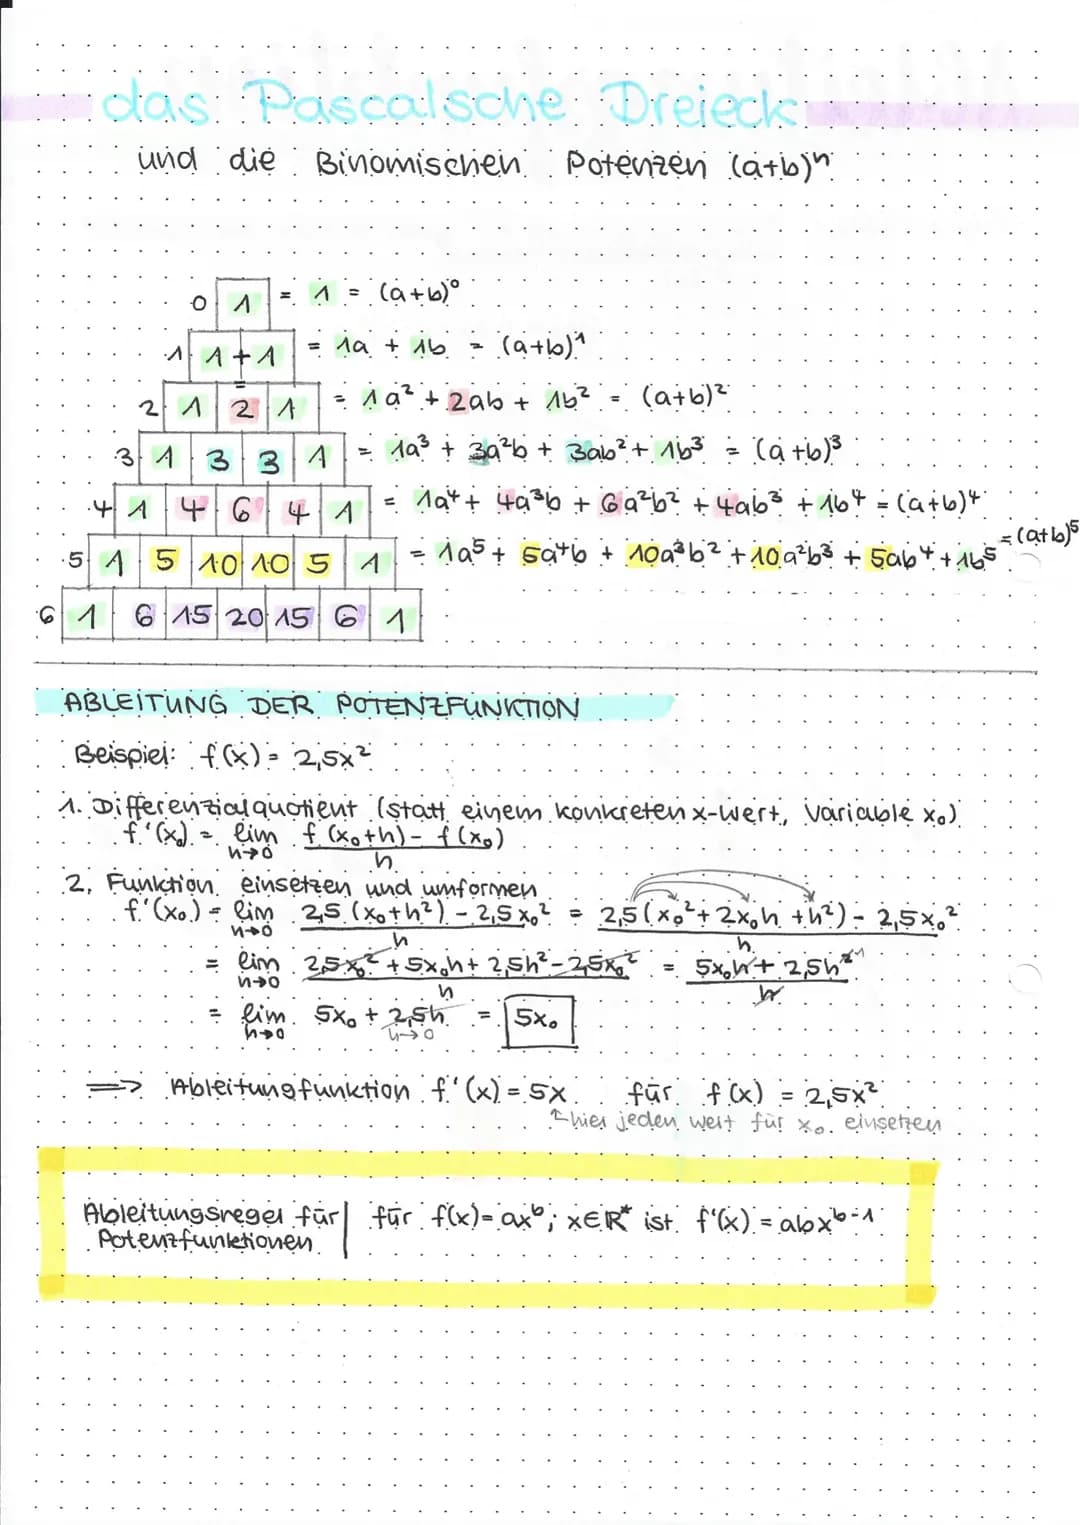 das Pascalsche Dreieck
und die Binomischen Potenzen (a+b)ⁿ
0 1 = 1 = (a+b)⁰
1 1+1 = 1a + 1b = (a+b)¹
=
2 1 2 1 = 1a² + 2ab + 1b² = (a+b)²
3 1 3 3 1 = 1a³ + 3a²b + 3ab² + 1b³ = (a+b)³
4 1 4 6 4 1 = 1a⁴ + 4a³b + 6a²b² + 4ab³ + 1b⁴ = (a+b)⁴
5 1 5 10 10 5 1 = 1a⁵ + 5a⁴b + 10a³b² + 10a²b³ + 5ab⁴ + 1b⁵ = (a+b)⁵
6 1 6 15 20 15 6 1
ABLEITUNG DER POTENZFUNKTION
Beispiel: f(x) = 2,5x²
1. Differenzialquotient (statt einem konkreten x-Wert, Variable x₀)
f'(x₀) = lim h→0 f(x₀+h) - f(x₀) / h
2. Funktion einsetzen und umformen
f'(x₀) = lim h→0 2,5(x₀+h²) - 2,5x₀² / h = 2,5(x₀² + 2x₀h + h²) - 2,5x₀² / h
= lim h→0 2,5x₀² + 5x₀h + 2,5h² - 2,5x₀² / h = 5x₀h + 2,5h²⁻¹ / h
= lim h→0 5x₀ + 2,5h = 5x₀
h→0
=> Ableitungfunktion f'(x) = 5x für f(x) = 2,5x²
↑hier jeden Wert für x₀ einsetzen
Ableitungsregel für | für f(x) = axᵇ; x∈ℝ* ist f'(x) = abxᵇ⁻¹
Potenzfunktionen